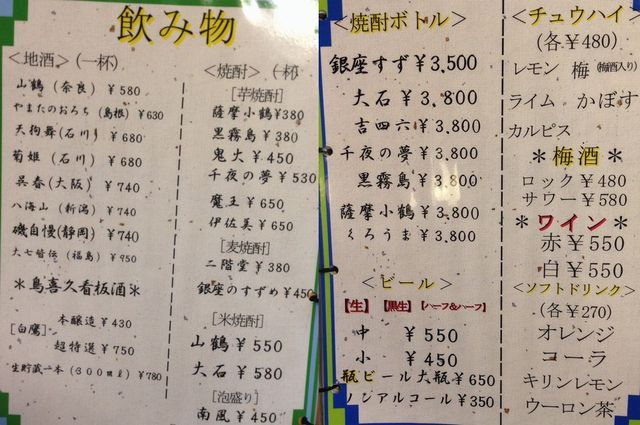 飲み物
＜地酒＞(一杯)
山鶴(奈良) ￥580
やまたのおろち(島根) ￥630
天狗舞(石川) ￥680
菊姫(石川) ￥680
呉春(大阪) ￥740
八海山(新潟) ￥740
磯自慢(静岡) ￥740
大七皆伝(福島) ￥950
＊鳥喜久看板酒＊
[白鷹]
本醸造 ￥430
超特選 ￥750
生貯蔵一本(300ml) ￥780
＜焼酎＞ 一杯
[芋焼酎]
薩摩小鶴￥380
黒霧島 ￥380
鬼火 ￥450
千夜の夢 ￥530
魔王 ￥650
伊佐美 ￥650
[麦焼酎]
二階堂 ￥380
銀座のすずめ￥450
[米焼酎]
山鶴 ￥550
大石 ￥580
[泡盛り]
南風 ￥450
＜焼酎ボトル＞
銀座すず￥3,500
大石 ￥3,800
吉四六 ￥3,800
千夜の夢 ￥3,800
黒霧島 ￥3,800
薩摩小鶴 ￥3,800
くろうま ￥3,800
＜ビール＞
【生】【黒生】【ハーフ&ハーフ】
中 ￥550
小 ￥450
瓶ビール大瓶￥650
ノンアルコール￥350
＜チュウハイ＞
(各￥480)
レモン 梅(梅酒入り)
ライム かぼす
カルピス
＊梅酒＊
ロック￥480
サワー￥580
＊ワイン＊
赤￥550
白￥550
＜ソフトドリンク＞
(各￥270)
オレンジ
コーラ
キリンレモン
ウーロン茶